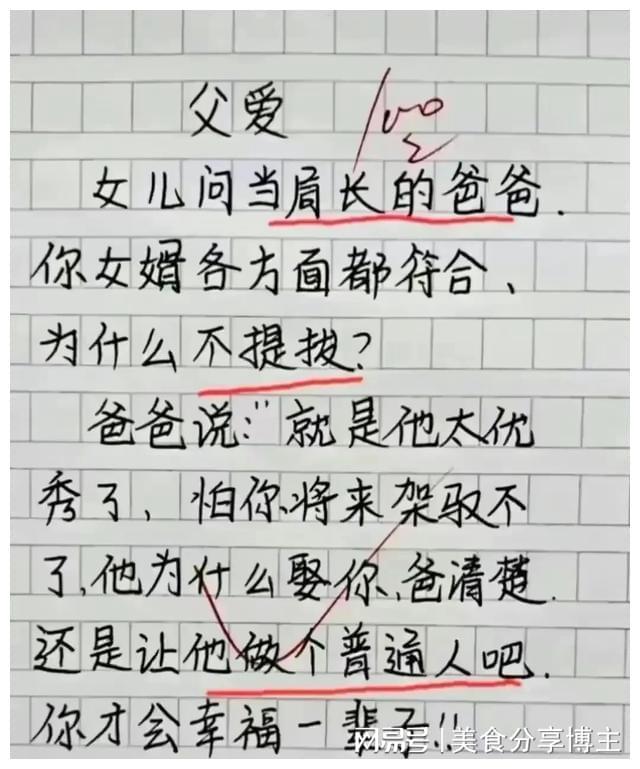 父爱 100
女儿问当局长的爸爸.
你女婿各方面都符合、
为什么不提拔?
爸爸说:"就是他太优
秀了、怕你将来架驭不
了,他为什么娶你,爸清楚.
还是让他做个普通人吧.
你才会幸福一辈子!!
搜狐号|美食分享博主